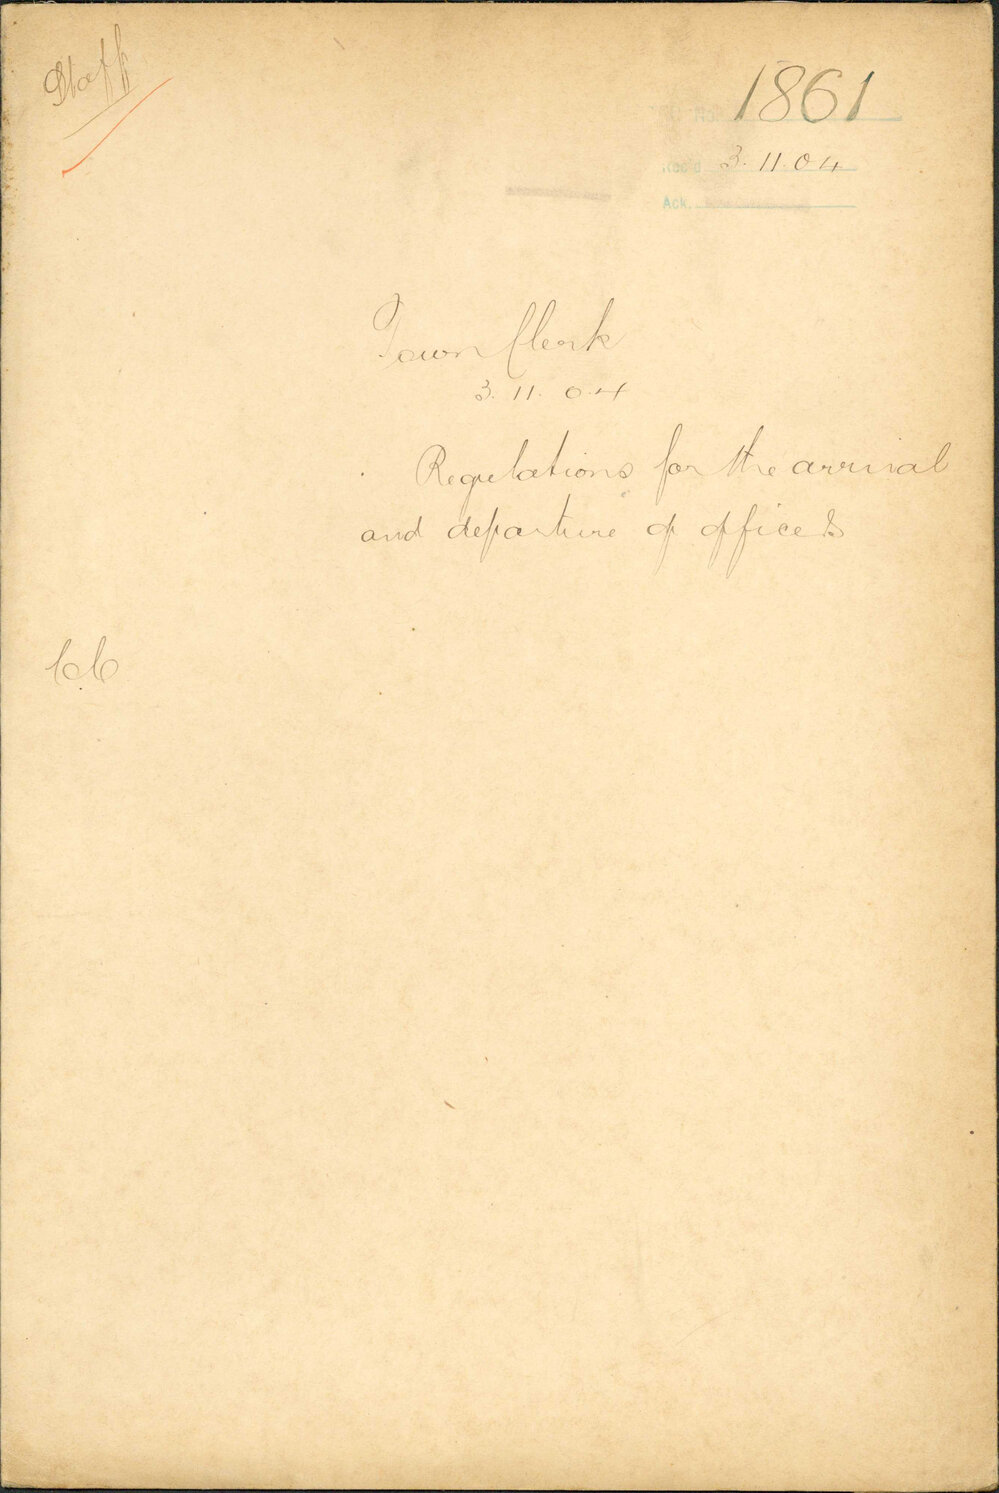 Staff
1861
Rec'd 3.11.04
Ack.
Town Clerk
3.11.04
Regulations for the arrival
and departure of officers